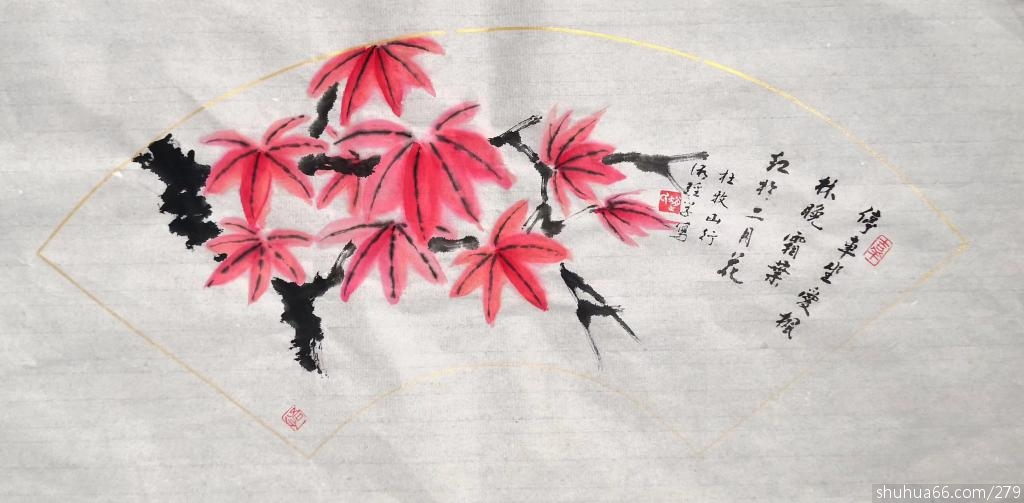 停车坐爱枫
林晚霜葉
红於二月花
杜牧山行
shuhua66.com/279